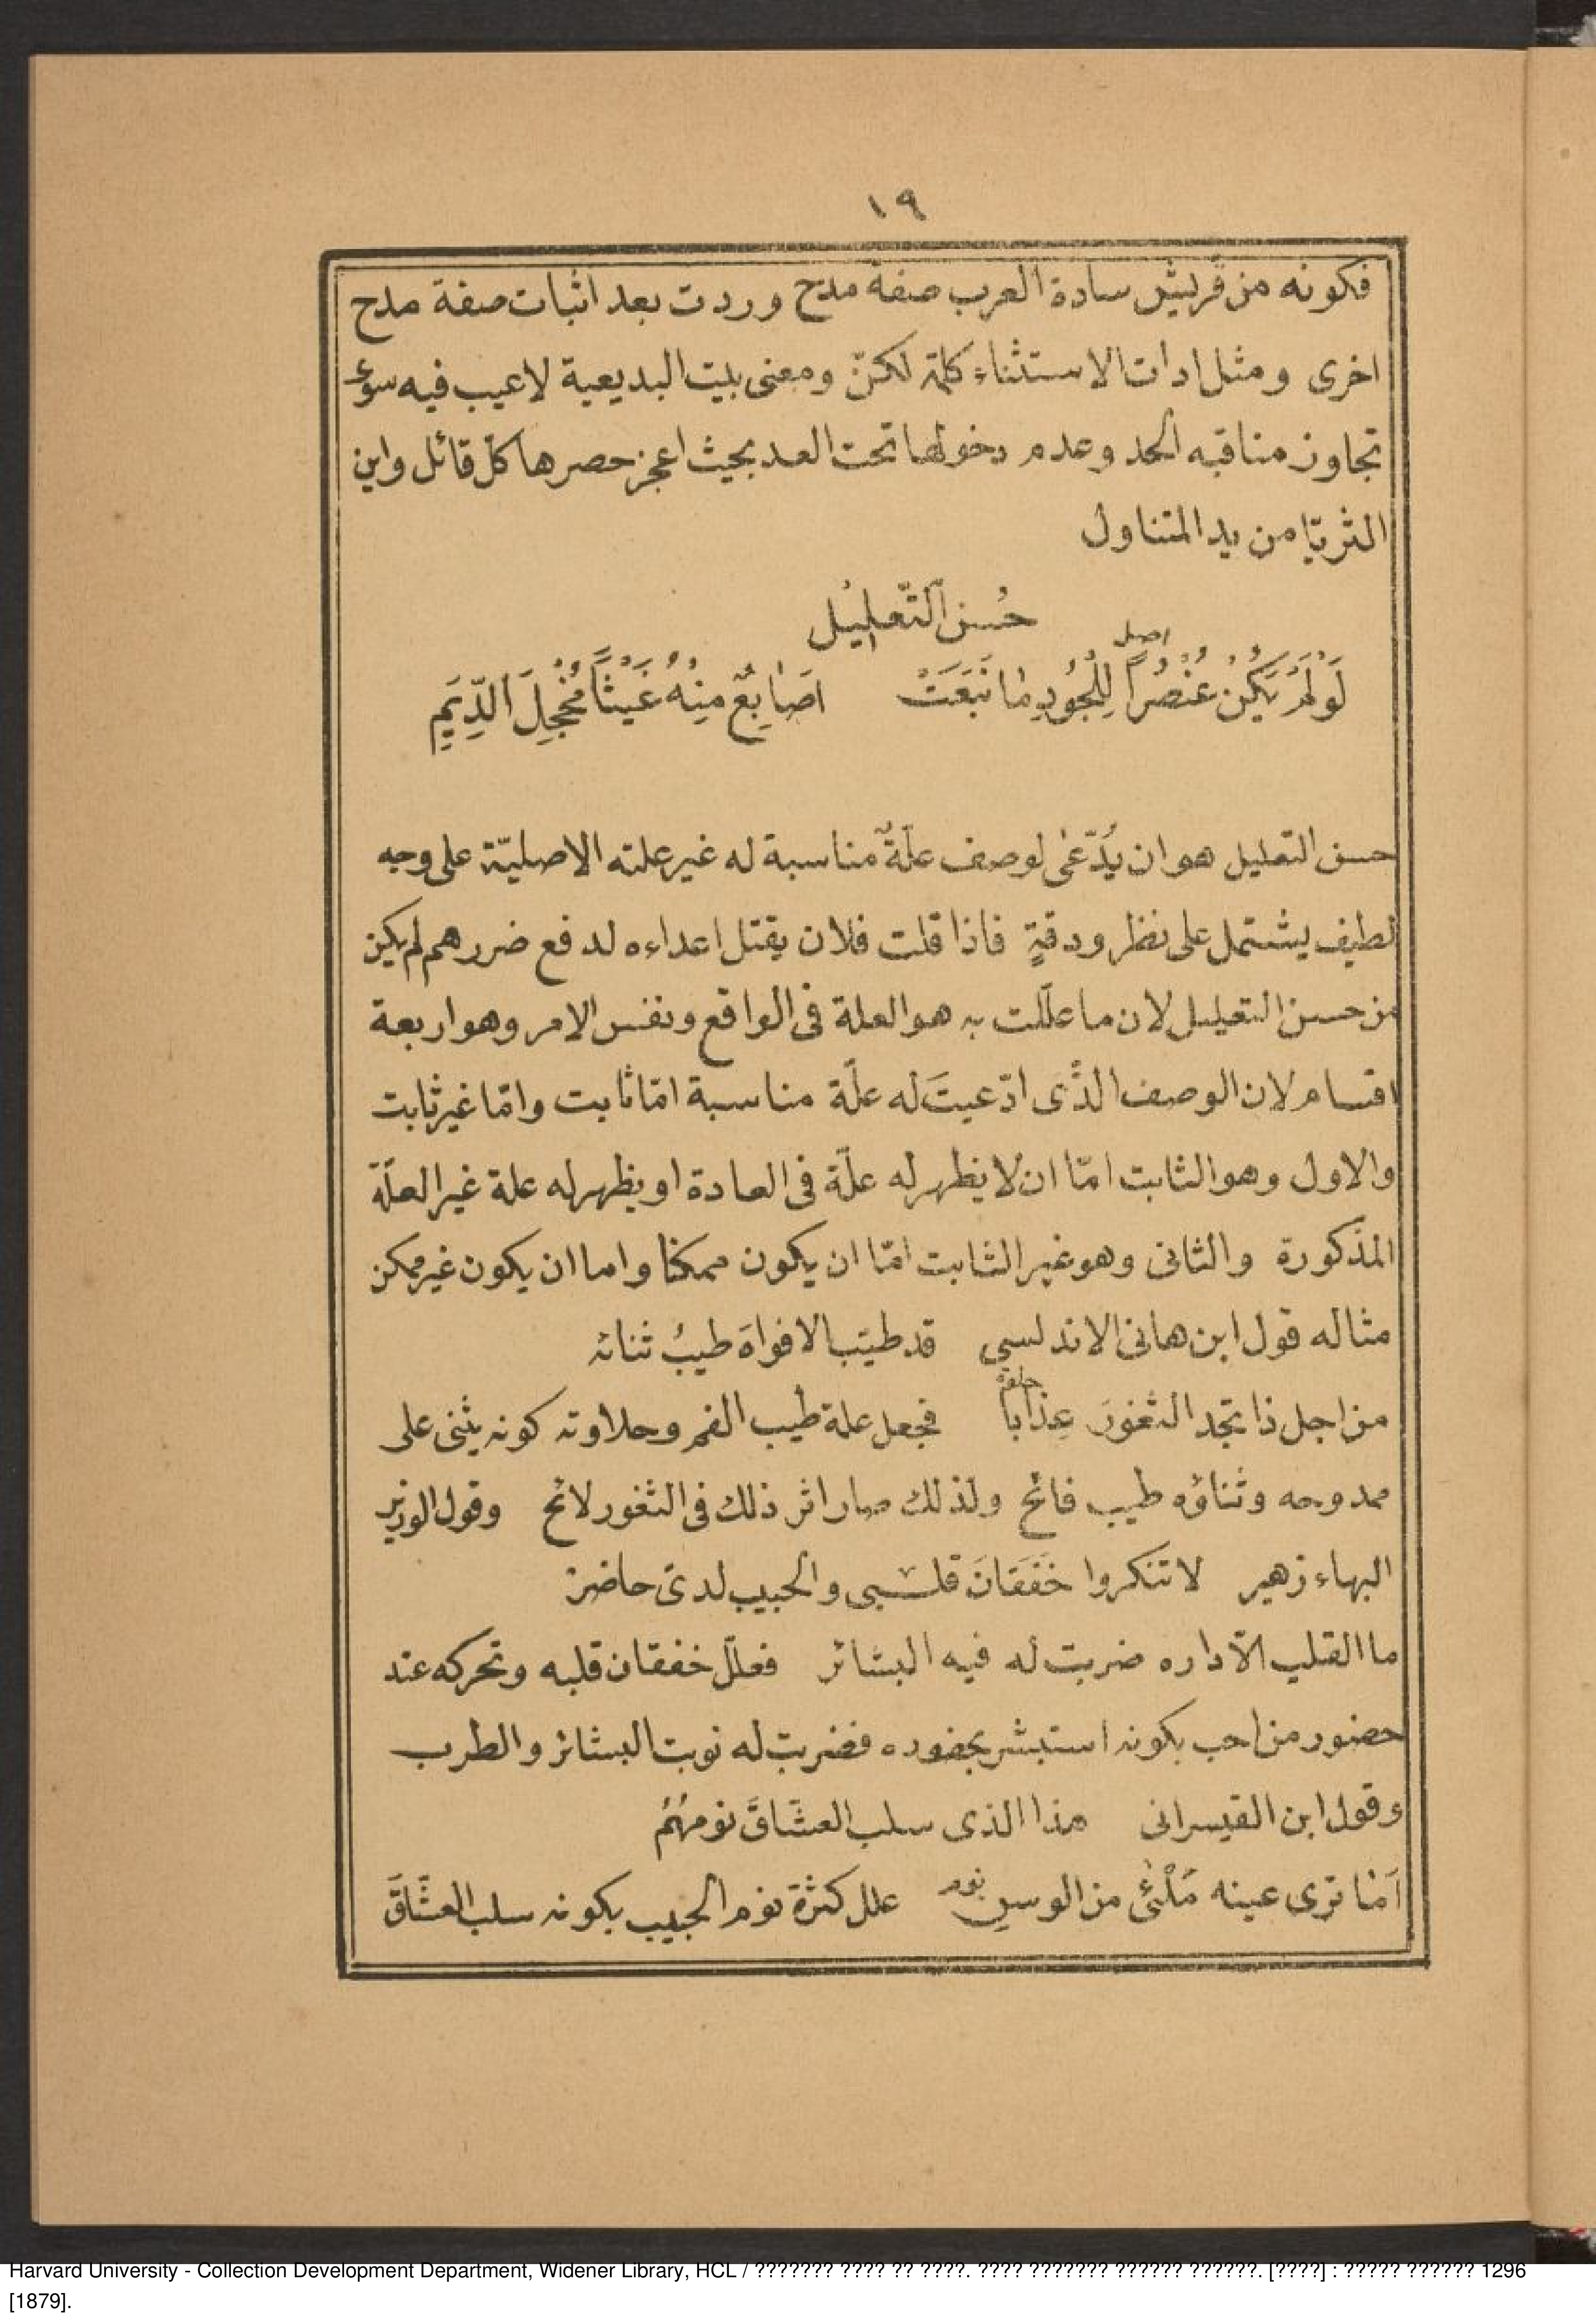 ١٩
فكونه من قُريش سادة العرب صفة مدح وردت بعد اثبات صفة مدح
اخرى ومثل ادات الاستثناء كلمة لكنّ ومعنى بيت البديعية لاعيب فيه سوى
تجاوز مناقبه الحد وعدم دخولها تحت العد بحيث اعجز حصرها كلّ قائل واين
الثريّا من يد المتناول
حُسن التّعليل
اصل
لَوْلَمْ يَكُنْ عُنْصُراً لِلْجُودِ مٰا نَبَعَتْ اَصٰابِعٌ مِنْهُ غَيْثاً مُخْجِلَ الدِّيَمِ
حسن التعليل هو ان يُدّعٰى لوصف علّةٌ مناسبة له غير علته الاصليّة على وجه
لطيف يشتمل على نظر ودقةٍ فاذا قلت فلان يقتل اعداءه لدفع ضررهم لم يكن
من حسن التعليل لان ما علّلت به هو العلة فى الواقع ونفس الامر وهو اربعة
اقسام لان الوصف الذّى ادّعيتَ له علّة مناسبة امّا ثابت وامّا غير ثابت
والاول وهو الثابت امّا ان لا يظهر له علّة فى العادة او يظهر له علة غير العلّة
المذكورة والثانى وهو غير الثابت امّا ان يكون ممكنا واما ان يكون غير ممكن
مثاله قول ابن هانئ الاندلسي قد طيّب الافواهَ طيبُ ثنائه
حلوة
من اجل ذا تجد الثغورَ عِذاباً فجعل علة طيب الفم وحلاوته كونه يثنى على
ممدوحه وثناؤه طيب فائح ولذلك صار اثر ذلك فى الثغور لائح وقول الوزير
البهاء زهير لا تنكروا خَفَقانَ قلبى والحبيب لدىّ حاضرْ
ما القلب الّا داره ضربت له فيه البشائر فعلّل خفقان قلبه وتحركه عند
حضور من احب بكونه استبشر بحضوره فضربت له نوبت البشائر والطرب
وقول ابن القيسرانى هذا الذى سلب العشّاقَ نومهُمُ
اَمٰا ترى عينه مَلْئٰى من الوسنِ نوم علل كثرة نوم الحبيب بكونه سلب العشّاقَ
Harvard University - Collection Development Department, Widener Library, HCL / ??????? ???? ?? ????. ???? ??????? ?????? ??????. [????] : ????? ?????? 1296
[1879].